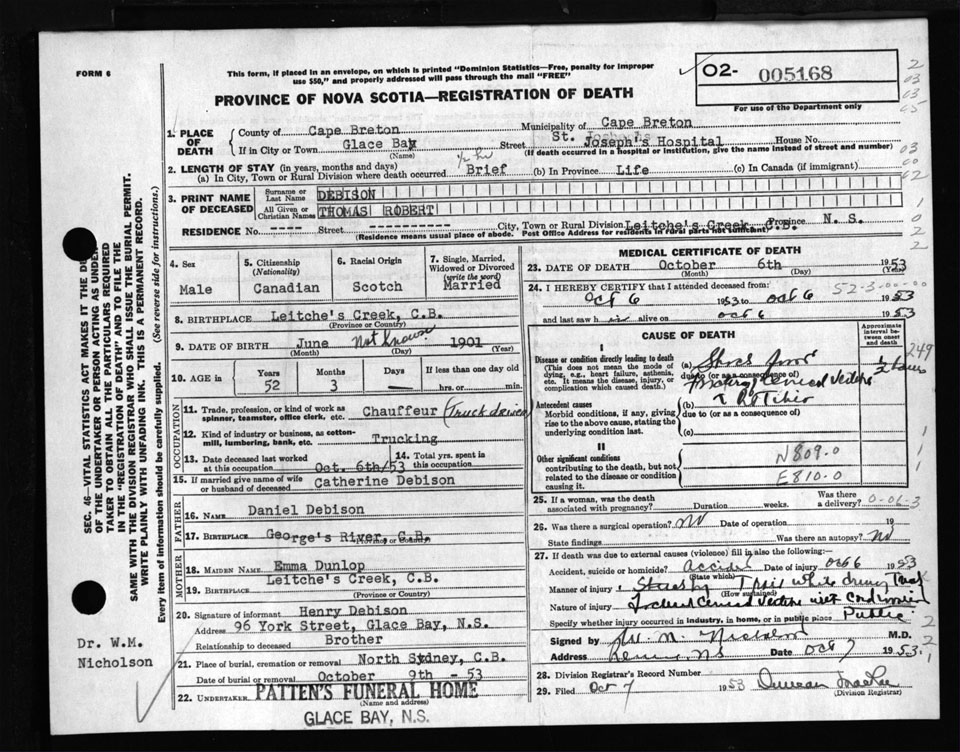 FORM 6
This form, if placed in an envelope, on which is printed "Dominion Statistics—Free, penalty for improper
use $50," and properly addressed will pass through the mail "FREE"
O2- 005168
For use of the Department only
PROVINCE OF NOVA SCOTIA—REGISTRATION OF DEATH
1. PLACE OF DEATH
County of Cape Breton Municipality of Cape Breton
If in City or Town Glace Bay Street St. Joseph's Hospital House No.
(Name) (If death occurred in a hospital or institution, give the name instead of street and number)
2. LENGTH OF STAY (in years, months and days)
(a) In City, Town or Rural Division where death occurred Brief (b) In Province Life (c) In Canada (if immigrant)
3. PRINT NAME OF DECEASED
Surname or Last Name DEBISON
All Given or Christian Names THOMAS ROBERT
RESIDENCE No. ---- Street ----------- City, Town or Rural Division Leitche's Creek, C.B. Province N. S.
(Residence means usual place of abode. Post Office Address for residents in rural parts not sufficient)
4. Sex
Male
5. Citizenship (Nationality)
Canadian
6. Racial Origin
Scotch
7. Single, Married, Widowed or Divorced (write the word)
Married
8. BIRTHPLACE Leitche's Creek, C.B.
(Province or Country)
9. DATE OF BIRTH June Not Known 1901
(Month) (Day) (Year)
10. AGE in Years 52 Months 3 Days — If less than one day old hrs. or min.
OCCUPATION
11. Trade, profession or kind of work as spinner, teamster, office clerk, etc. Chauffeur (Truck driver)
12. Kind of industry or business, as cotton-mill, lumbering, bank, etc. Trucking
13. Date deceased last worked at this occupation Oct. 6th/53
14. Total yrs. spent in this occupation
15. If married give name of wife or husband of deceased Catherine Debison
FATHER
16. NAME Daniel Debison
17. BIRTHPLACE George's River, C.B.
(Province or Country)
MOTHER
18. MAIDEN NAME Emma Dunlop
19. BIRTHPLACE Leitche's Creek, C.B.
(Province or Country)
20. Signature of informant Henry Debison
Address 96 York Street, Glace Bay, N.S.
Relationship to deceased Brother
21. Place of burial, cremation or removal North Sydney, C.B.
Date of burial or removal October 9th - 53
22. UNDERTAKER PATTEN'S FUNERAL HOME
(Name and address)
GLACE BAY, N.S.
MEDICAL CERTIFICATE OF DEATH
23. DATE OF DEATH October 6th 1953
(Month) (Day) (Year)
24. I HEREBY CERTIFY that I attended deceased from: 52-3-00-00
Oct 6 1953 to Oct 6 1953
and last saw h im alive on Oct 6 1953
CAUSE OF DEATH
Approximate interval between onset and death
Disease or condition directly leading to death
(This does not mean the mode of dying, e.g., heart failure, asthenia, etc. It means the disease, injury, or complication which caused death.)
(a) Shock
due to (or as a consequence of)
1/2 hours
249
Antecedent causes
Morbid conditions, if any, giving rise to the above cause, stating the underlying condition last.
(b)
due to (or as a consequence of)
(c)
II
Other significant conditions contributing to the death, but not related to the disease or condition causing it.
N809.0
E810.0
25. If a woman, was the death associated with pregnancy? Duration weeks. Was there a delivery? 0-06-3
26. Was there a surgical operation? No Date of operation 19
State findings Was there an autopsy? No
27. If death was due to external causes (violence) fill in also the following:
Accident, suicide or homicide? Accident Date of injury Oct 6 1953
(State which)
Manner of injury Struck by Train while driving Truck
(How sustained)
Nature of injury
Specify whether injury occurred in industry, in home, or in public place Public
Signed by W. M. Nicholson M.D.
Address NS Date Oct 7 1953
28. Division Registrar's Record Number
29. Filed Oct 7 1953 Duncan
(Division Registrar)
SEC. 46—VITAL STATISTICS ACT MAKES IT THE
OF THE UNDERTAKER OR PERSON ACTING AS UNDER-
TAKER TO OBTAIN ALL THE PARTICULARS REQUIRED
IN THE "REGISTRATION OF DEATH" AND TO FILE THE
SAME WITH THE DIVISION REGISTRAR WHO SHALL ISSUE THE BURIAL PERMIT.
WRITE PLAINLY WITH UNFADING INK. THIS IS A PERMANENT RECORD.
Every item of information should be carefully supplied. (See reverse side for instructions.)
Dr. W.M.
Nicholson